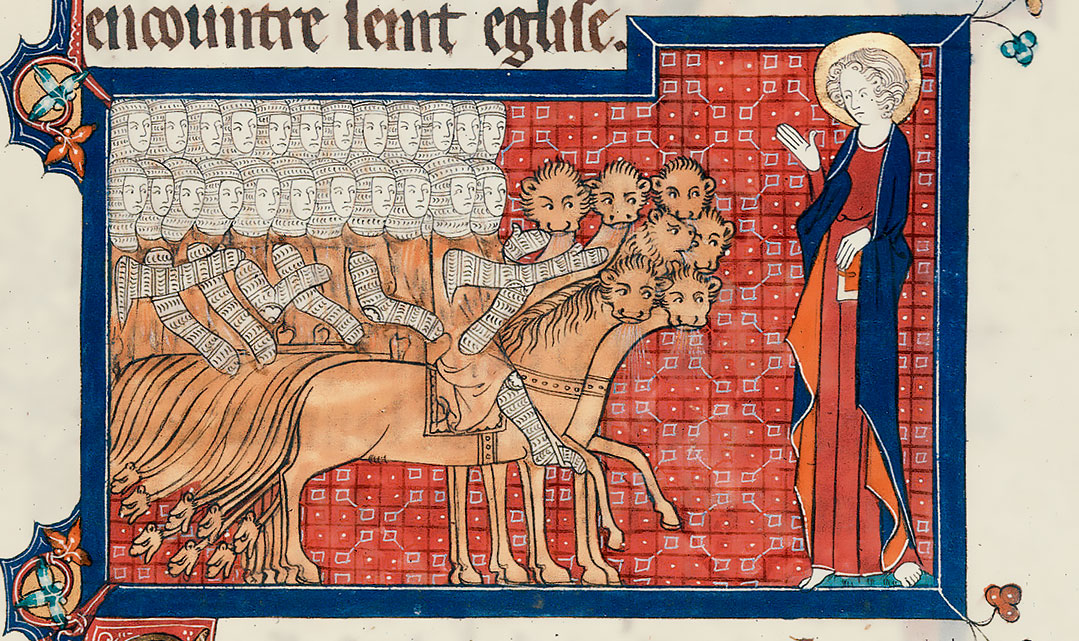 encountre seint eglise.